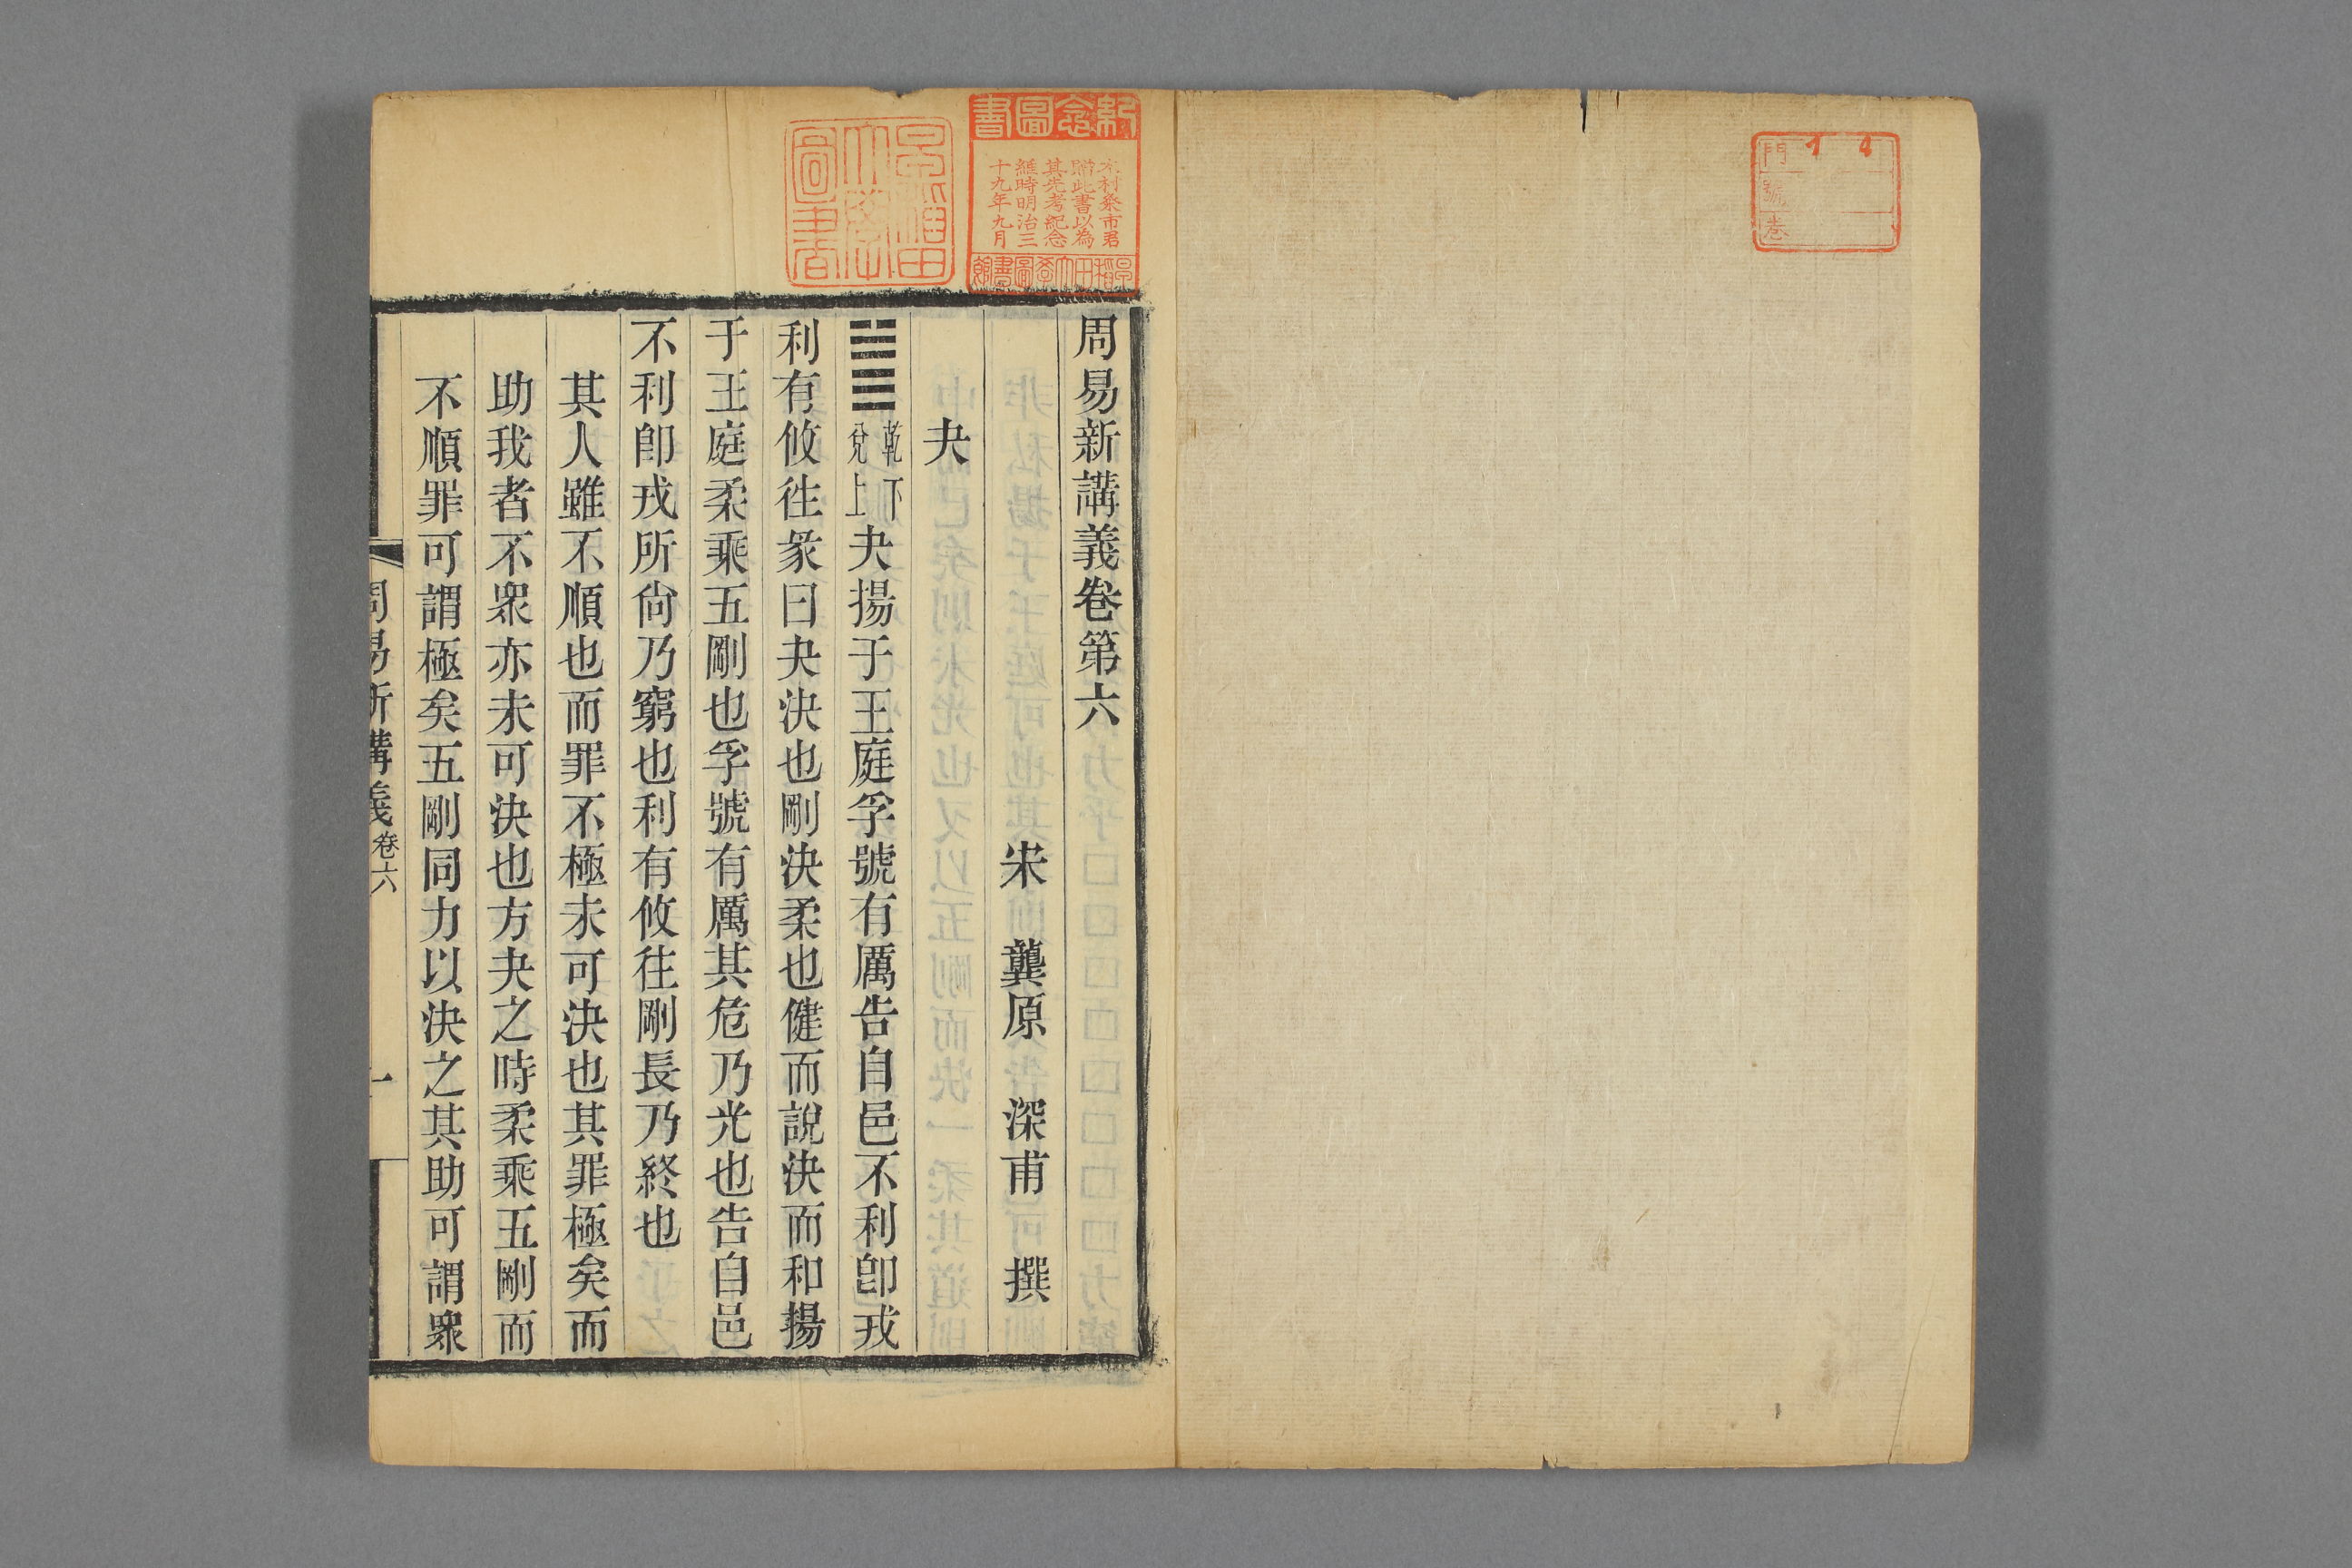 周易新講義卷第六
宋 龔原 深甫 撰
夬
乾下
兌上
夬揚于王庭孚號有厲告自邑不利卽戎
利有攸往彖曰夬決也剛決柔也健而說決而和揚
于王庭柔乘五剛也孚號有厲其危乃光也告自邑
不利卽戎所尙乃窮也利有攸往剛長乃終也
其人雖不順也而罪不極未可決也其罪極矣而
助我者不衆亦未可決也方夬之時柔乘五剛而
不順罪可謂極矣五剛同力以決之其助可謂衆
周易新講義
卷六
一
紀念圖書
木村粂市君
贈此書以為
其先考紀念
維時明治三
十九年九月
早稻田大學圖書館
早稻田
大學
圖書
門
號
卷